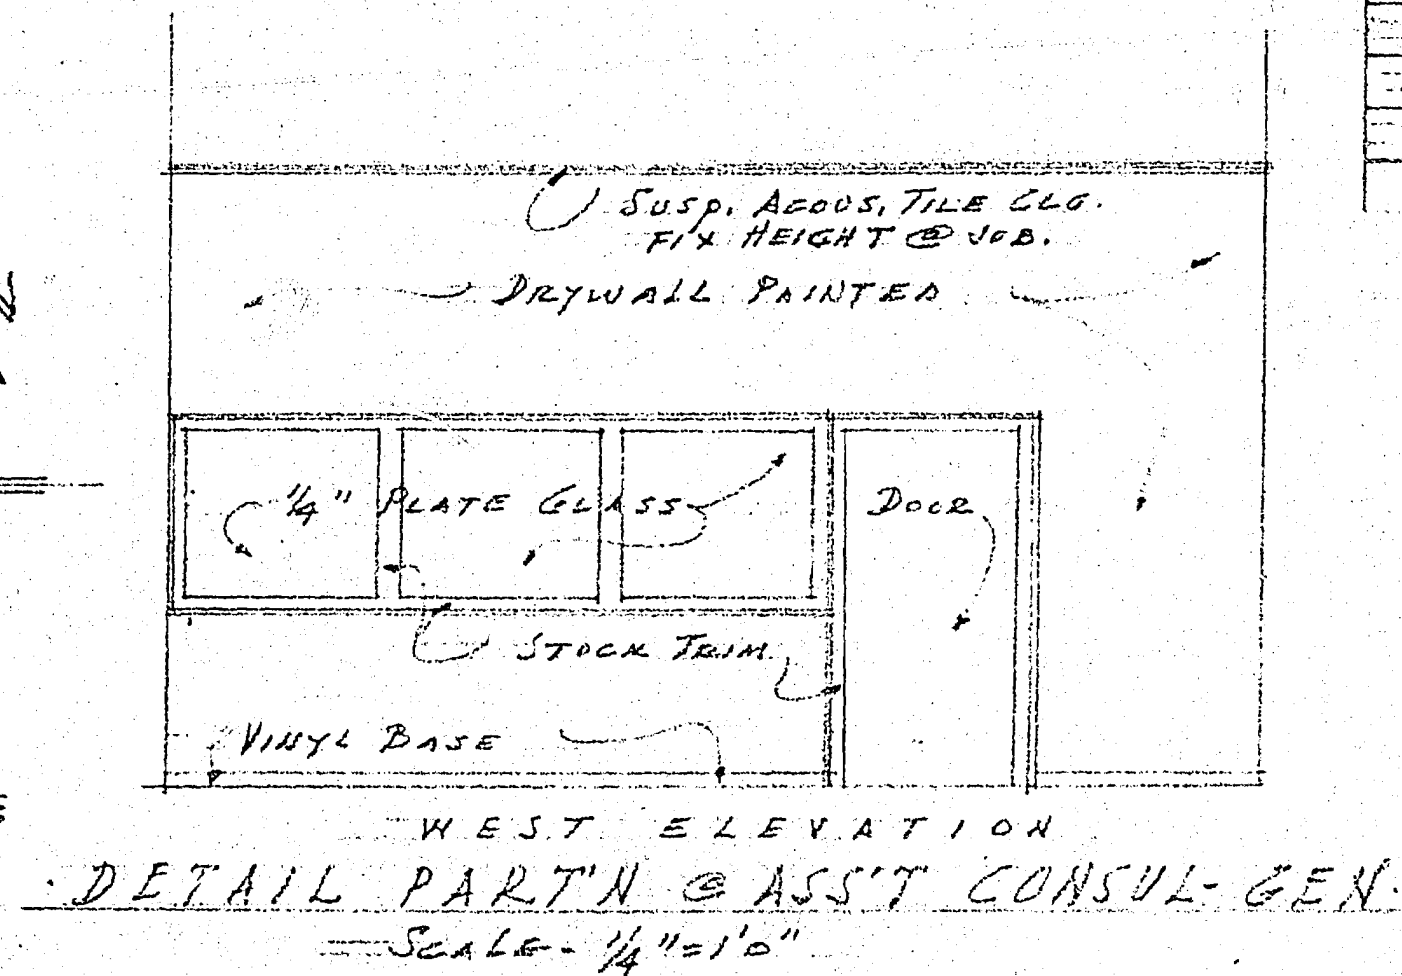 SUSP. ACOUS, TILE CLG.
FIX HEIGHT @ JOB.
DRYWALL PAINTED
1/4" PLATE GLASS
DOOR
STOCK TRIM
VINYL BASE
WEST ELEVATION
DETAIL PART'N @ ASS'T CONSUL-GEN.
SCALE - 1/4" = 1'0"